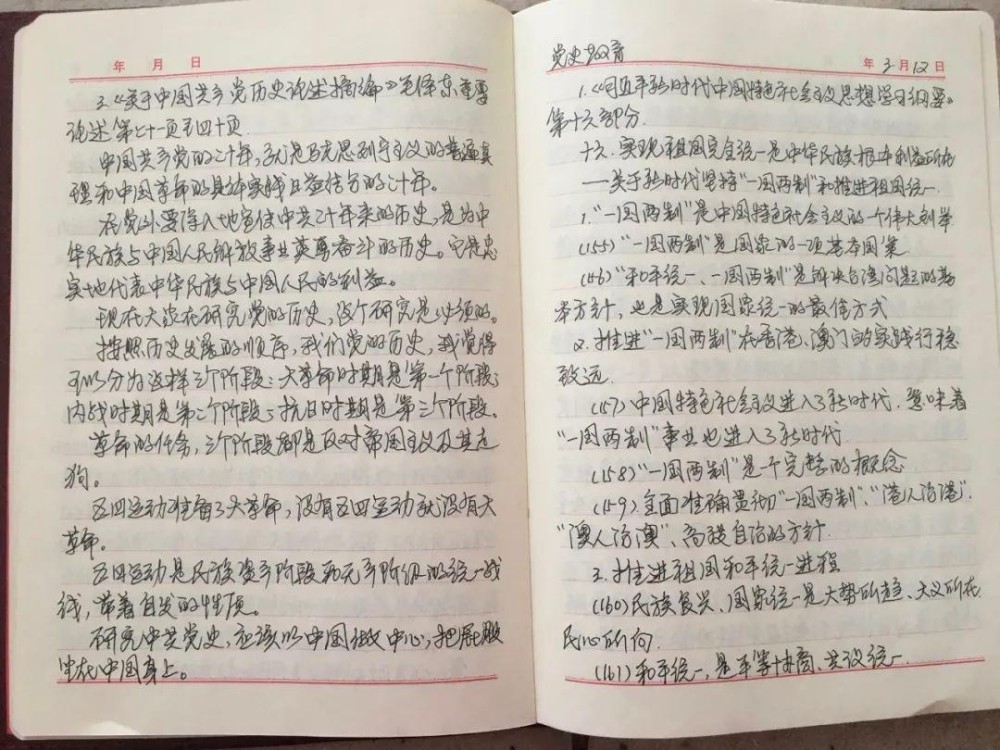 年 月 日
3.《关于中国共产党历史论述摘编》毛泽东重要
论述第二十一页至四十页.
中国共产党的二十年,就是马克思列宁主义的普遍真
理和中国革命的具体实践日益结合的二十年。
在党外要深入地宣传中共二十年来的历史,是为中
华民族与中国人民解放事业英勇奋斗的历史。它是忠
实地代表中华民族与中国人民的利益。
现在大家在研究党的历史,这个研究是必须的。
按照历史发展的顺序,我们党的历史,我觉得
可以分为这样三个阶段:大革命时期是第一个阶段;
内战时期是第二个阶段;抗日时期是第三个阶段。
革命的任务,三个阶段都是反对帝国主义及其走
狗。
五四运动准备了大革命,没有五四运动就没有大
革命。
五四运动是民族资产阶段和无产阶级的统一战
线,带着自发的性质。
研究中共党史,应该以中国做中心,把屁股
坐在中国身上。
党史教育
年 3月12日
1.《习近平新时代中国特色社会主义思想学习纲要》
第十六部分.
十六.实现祖国完全统一是中华民族根本利益所在
——关于新时代坚持"一国两制"和推进祖国统一.
1."一国两制"是中国特色社会主义的一个伟大创举
(155)"一国两制"是国家的一项基本国策
(156)"和平统一、一国两制"是解决台湾问题的基
本方针,也是实现国家统一的最佳方式
2.推进"一国两制"在香港、澳门的实践行稳
致远.
(157)中国特色社会主义进入了新时代.意味着
"一国两制"事业也进入了新时代
(158)"一国两制"是一个完整的概念
(159)全面准确贯彻"一国两制"、"港人治港".
"澳人治澳"、高度自治的方针.
3.推进祖国和平统一进程
(160)民族复兴、国家统一是大势所趋、大义所在.
民心所向.
(161)和平统一,是平等协商、共议统一.